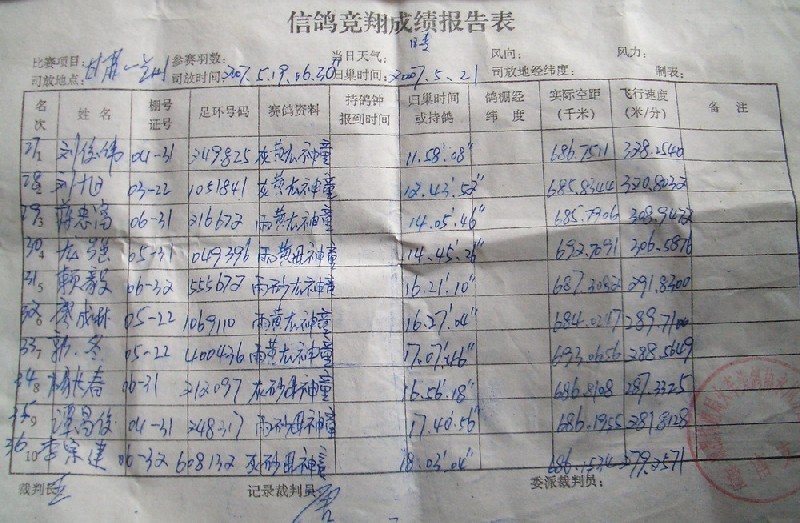 信鸽竞翔成绩报告表
比赛项目: 参赛羽数: 当日天气: 晴 风向: 风力:
司放地点: 甘肃 司放时间: 2007.5.19.06.30 归巢时间: 2007.5.21 司放地经纬度: 制表:
名次 姓名 棚号证号 足环号码 赛鸽资料 持鸽钟报到时间 归巢时间或持鸽 鸽棚经纬度 实际空距(千米) 飞行速度(米/分) 备注
27 1 刘俊伟 04-31 249825 灰黄左神童 11.58.08" 686.7511 328.2540
28 2 刘旭 03-22 1051841 灰黄左神童 12.43.52" 685.8344 320.8232
29 3 蒋忠富 06-31 216672 雨黄左神童 14.05.46" 685.7906 308.9472
30 4 05-31 049396 雨黄母神童 14.45.26" 692.7091 306.5876
31 5 赖毅 06-32 555672 雨砂左神童 16.21.10" 687.2082 291.8300
32 6 廖成林 05-22 1069110 雨黄左神童 16.27.04" 684.0217 289.7100
33 7 郭冬 05-22 400436 雨黄左神童 17.07.46" 693.0656 288.5649
34 8 杨长春 06-31 212097 灰砂母神童 16.56.18" 686.8108 287.3325
35 9 04-31 248317 雨砂母神童 17.40.56" 686.1955 281.8128
36 10 李宗建 06-32 608132 灰砂母神童 18.03.04" 686.1534 279.2571
裁判长 记录裁判员: 委派裁判员: